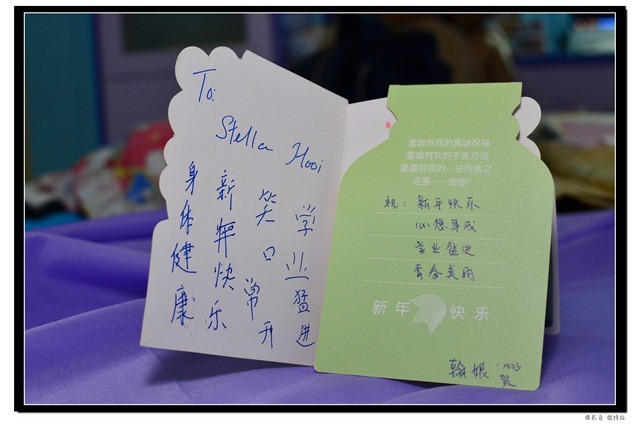 To:
Stella Hooi
身体健康
新年快乐
笑口常开
学业猛进
里面有我的真诚祝福
里面有我的千言万语
里面有我的…总而言之
还是……想你!
祝：新年快乐
心想事成
学业猛进
青春美丽
新年 快乐